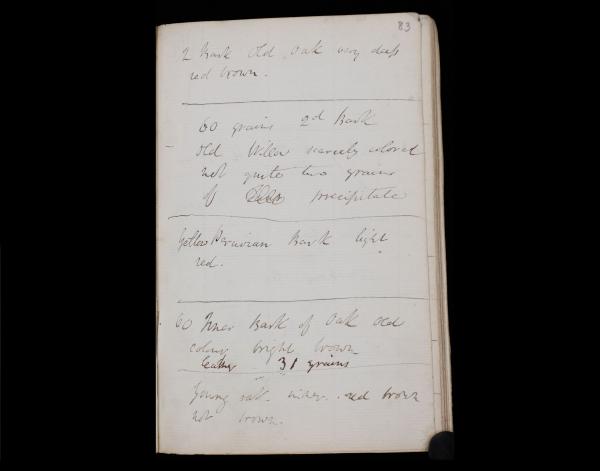 83
2 Bark Old Oak very deep
red brown.
60 grains 2d Bark
old Willow scarcely colored
not quite two grains
of precipitate
Yellow Peruvian Bark light
red.
60 Inner Bark of Oak Old
colour bright brown
leather 31 grains
Young red brown
not brown.